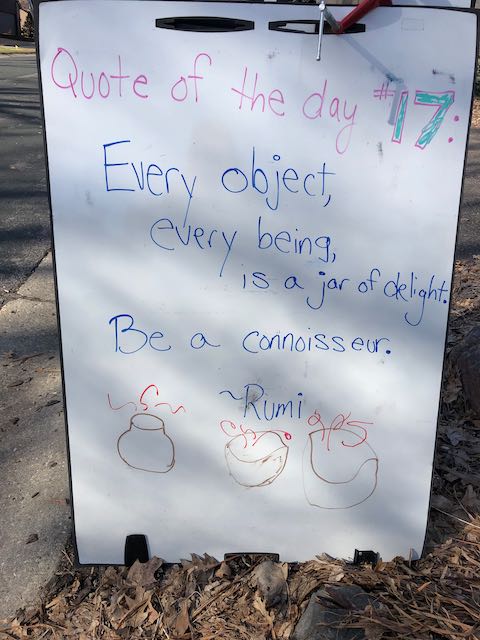 Quote of the day #17:
Every object,
every being,
is a jar of delight.
Be a connoisseur.
~Rumi